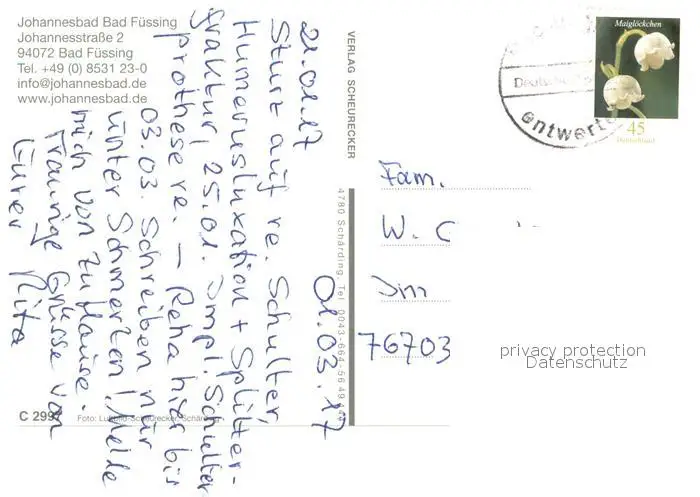 Johannesbad Bad Füssing
Johannesstraße 2
94072 Bad Füssing
Tel. +49 (0) 8531 23-0
info@johannesbad.de
www.johannesbad.de
01.03.17
21.01.17
Sturz auf re. Schulter,
Humerusluxation + Splitter-
fraktur, 25.01. Impl. Schulter
prothese re. – Reha hier bis
03.03. Schreiben nur
unter Schmerzen! Melde
mich von zu Hause.
Traurige Grüsse von
Eurer Rita
C 2997
Foto: Luftbild-Scheurecker, Schärding
VERLAG SCHEURECKER
4780 Schärding, Tel. 0043-664-56 49
Maiglöckchen
45
Deutschland
Deutsche
entwerte
Fam.
W. C
Im
76703
privacy protection
Datenschutz